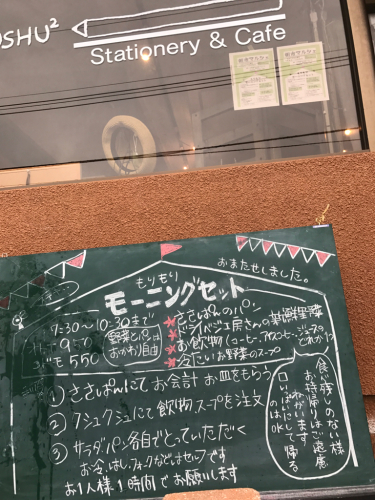 OSHU²
Stationery & Cafe
おまたせしました。
もりもり
モーニングセット
7:30〜10:30まで
950
550
野菜とパンは
おかわり自由
★ささぱんのパン
★ドライベジ工房さんの
★お飲物(コーヒー、アイスコーヒー、ジュースの
どれか1つ)
★冷たいお野菜のスープ
① ささぱんにてお会計 お皿をもらう
② クシュクシュにて飲物スープを注文
③ サラダパン各自でとっていただく
お冷、はし、フォークなどはセルフです
お1人様1時間でお願いします
食べ残しのない様
お持帰りはご遠慮
ねがいます
口いっぱいにして帰る
のはOK